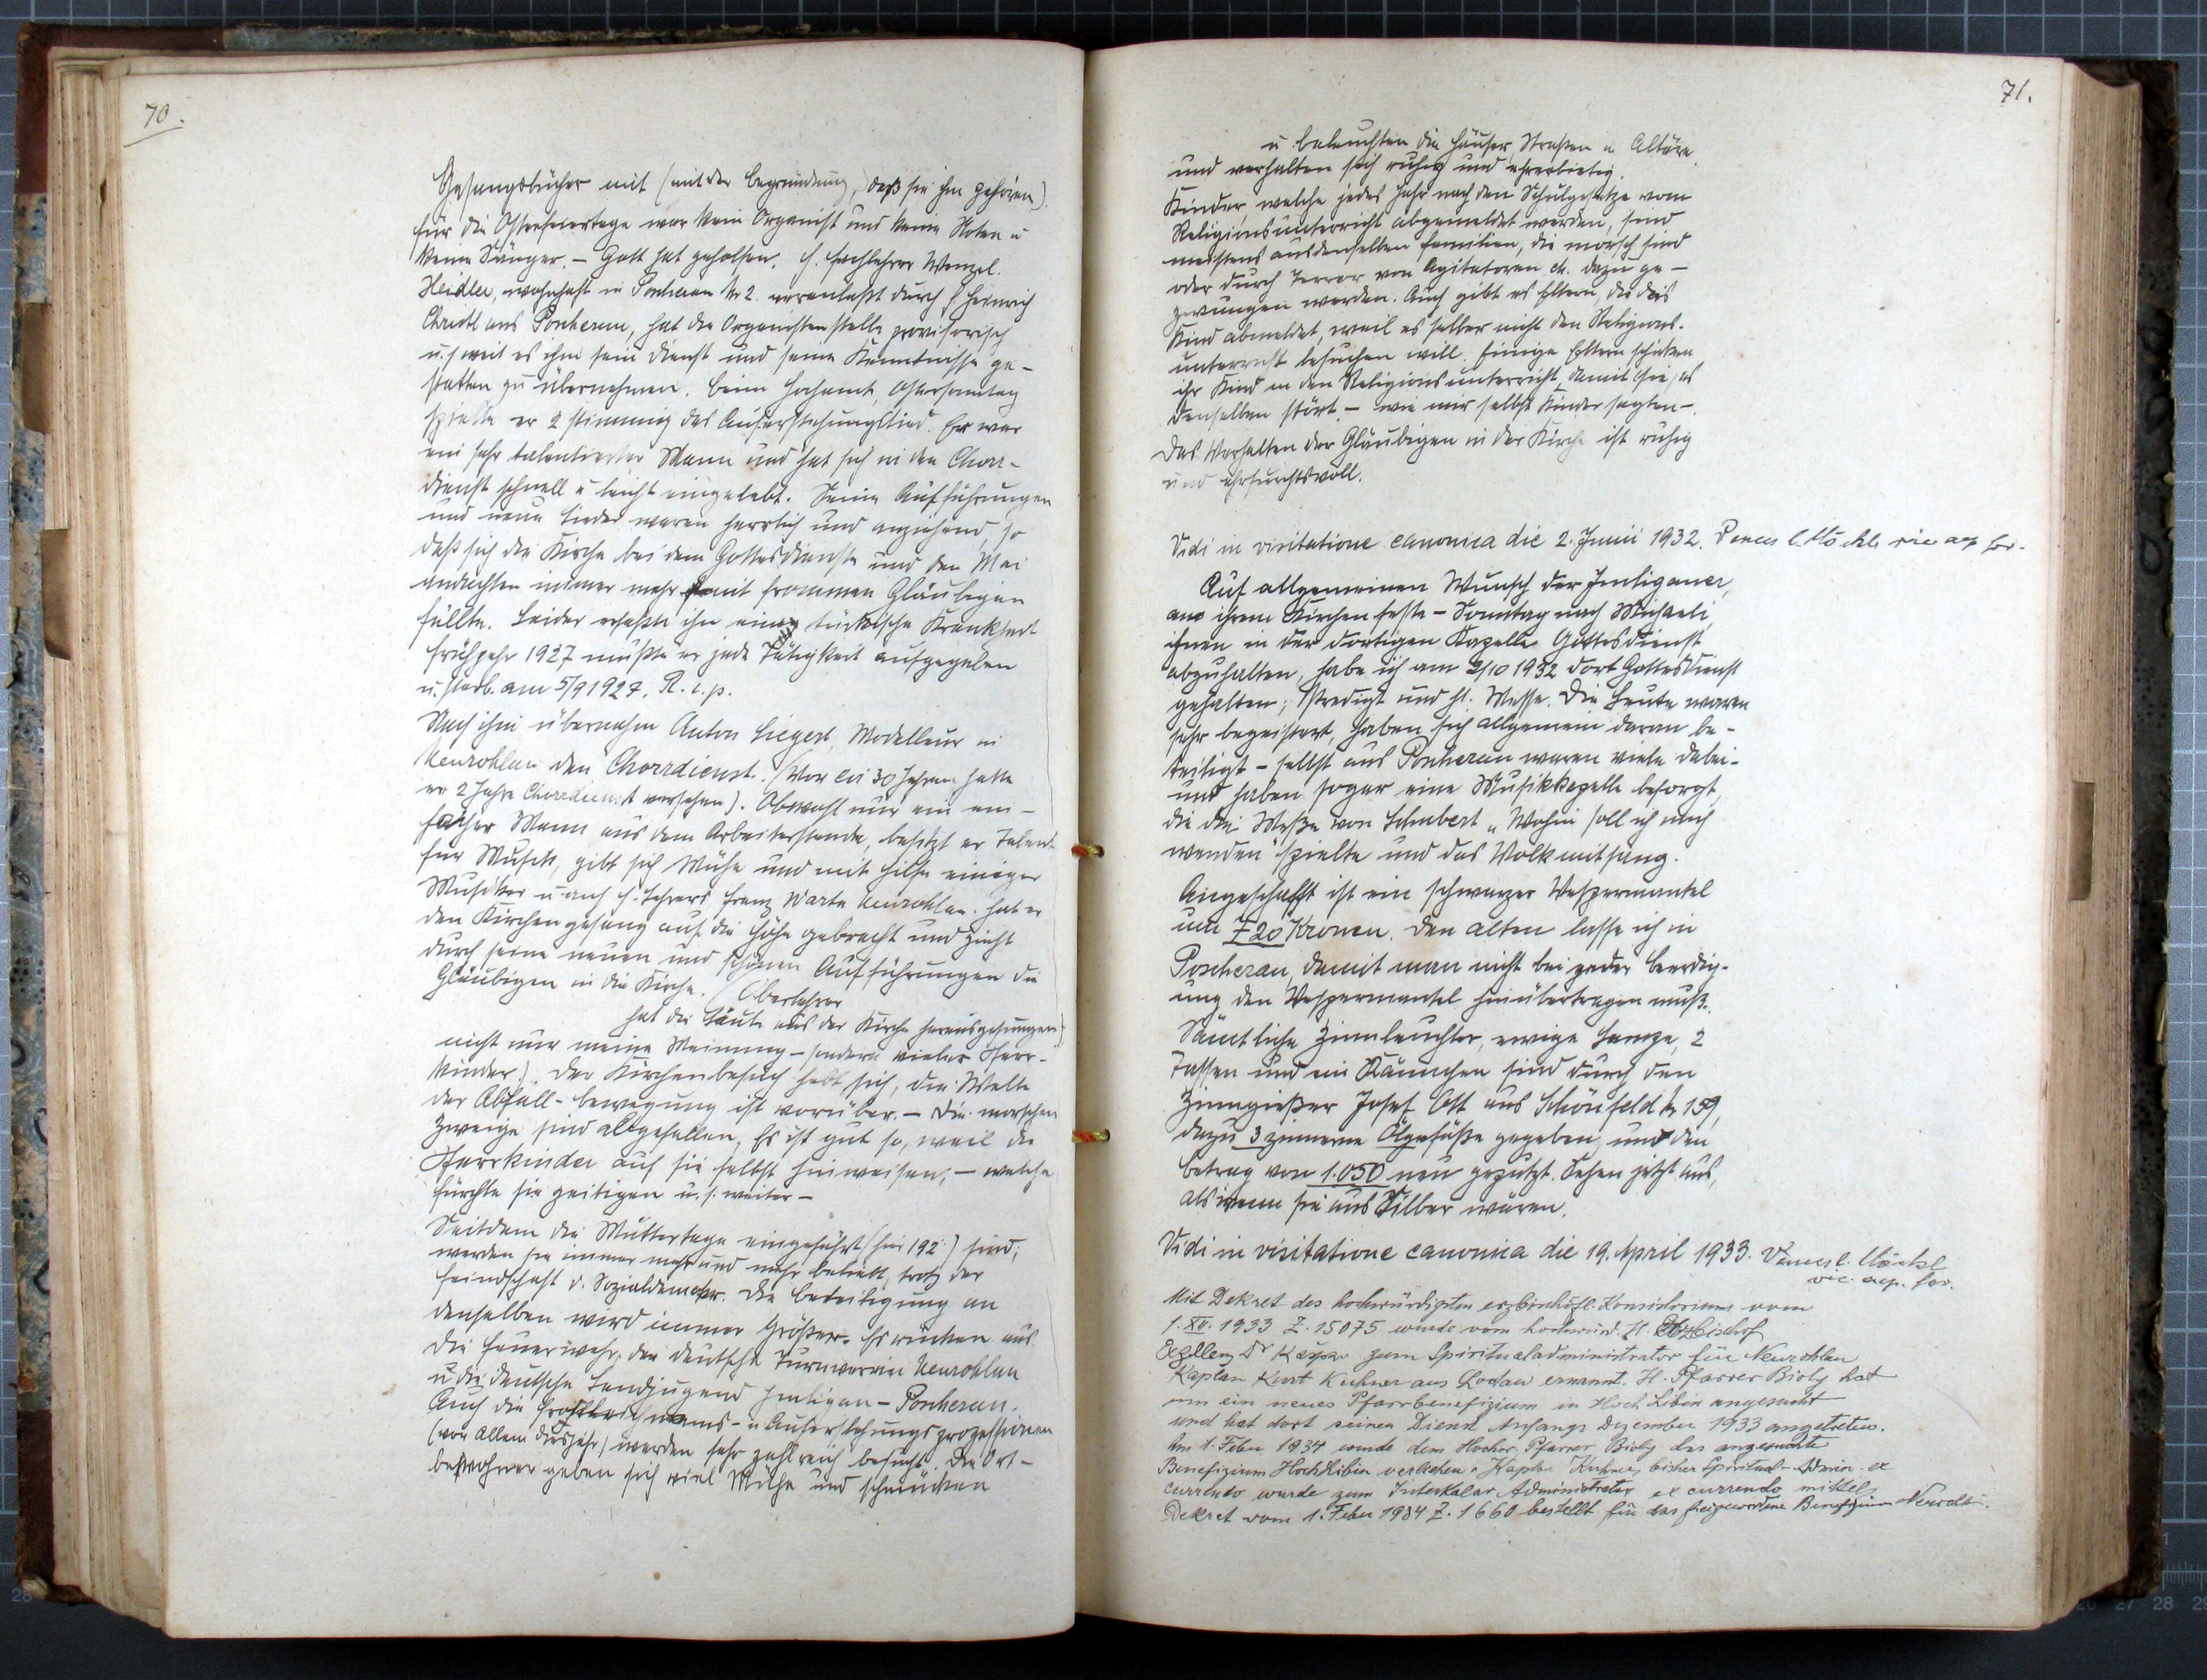 70.
Gesangsbücher mit (mit der Begründung, daß sie ihm gehören).
für die Osterfeiertage war kein Organist und keine Noten u
keine Sänger. – Gott hat geholfen. H. Fachlehrer Wenzel.
Heidler, wohnhaft in Poscherau № 2. veranlaßt durch H. Heinrich
Christl aus Poscherau, hat die Organistenstelle provisorisch
u. s weit es ihm sein Dienst und seine Kenntnisse ge-
statten zu übernehmen. Beim Hochamt, Ostersonntag
spielte er 2 stimmig das Auferstehungslied. Er war
ein sehr talentierter Mann und hat sich in den Chorr-
dienst schnell u leicht eingelebt. Seine Aufführungen
und neue Lieder waren herrlich und anziehend, so
daß sich die Kirche bei dem Gottesdienste und den Mai
andachten immer mehr mit frommen Gläubigen
füllte. Leider erfaßte ihn eine tückische Krankheit
Frühjahr 1927 mußte er jede Tätigkeit aufgegeben
u. starb am 5/9 1927. R. i. p.
Nach ihm übernahm Anton Siegert, Modelleur in
Neurohlau den Chorrdienst. (Vor ca 30 Jahren hatte
er 2 Jahre Chorrdienst versehen). Obwohl nur ein ein-
facher Mann aus dem Arbeiterstande, besitzt er Talent
für Musik, gibt sich Mühe und mit Hilfe einiger
Musiker u. auch H. Lehrers Franz Warta Neurohlau. hat er
den Kirchengesang auf die Höhe gebracht und zieht
durch seine neuen und schönen Aufführungen die
Gläubigen in die Kirche. (Oberlehrer
hat die Leute aus der Kirche herausgesungen
nicht nur meine Meinung – sondern vieler Pfarr-
kinder). Der Kirchenbesuch hebt sich, die Welle
der Abfall-bewegung ist vorüber. – Die morschen
Zweige sind abgefallen, Es ist gut so, weil die
Pfarrkinder auf sie selbst hinweisen, – welche
Früchte sie zeitigen u. s. weiter –
Seitdem die Muttertage eingeführt (hier 192 ) sind,
werden sie immer mehr und mehr beliebt, trotz der
Feindschaft d. Sozialdemokr. Die Beteiligung an
denselben wird immer Größer. Es rücken aus
die Feuerwehr, der deutsche Turnverein Neurohlau
u die deutsche Landjugend Imligau – Poscherau.
Auch die Frohnleichnams- u Auferstehungsprozessionen
(vor Allem dies Jahr) werden sehr zahlreich besucht. Die Ort-
bewohner geben sich viel Mühe und schmücken
71.
u. beleuchten die Häuser, Straßen u Altäre.
und verhalten sich ruhig und ehrerbietig.
Kinder, welche jedes Jahr nach dem Schulgesetze vom
Religionsunterricht abgemeldet werden, sind
meistens aus denselben Familien, die morsch sind
oder durch Terror von Agitatoren dazu ge-
zwungen werden. Auch gibt es Eltern, die das
Kind abmeldet, weil es selber nicht den Religions-
unterricht besuchen will. Einige Eltern schicken
ihr Kind in den Religionsunterricht, damit es
denselben stört. – wie mir selbst Kinder sagten –.
Das Verhalten der Gläubigen in der Kirche ist ruhig
und ehrfurchtsvoll.
Vidi in visitatione canonica die 2. Junii 1932. Vences l. Möckl vic aep for.
Auf allgemeinen Wunsch der Imligauer,
am ihrem Kirchenfeste – Sonntag nach Michaeli,
ihnen in der dortigen Kapelle Gottesdienst
abzuhalten, habe ich am 2/10 1932 dort Gottesdienst
gehalten; Predigt und hl. Messe. Die Leute waren
sehr begeistert, haben sich allgemein daran be-
teiligt – selbst aus Poscherau waren viele dabei –
und haben sogar eine Musikkapelle besorgt,
die die Meße von Schubert „Wohin soll ich mich
wenden" spielte und das Volk mitsang.
Angeschafft ist ein schwarzer Vespermantel
um 720 Kronen. Den alten lasse ich in
Poscherau, damit man nicht bei jeder Beerdig-
ung den Vespermantel hinübertragen muß.
Sämtliche Zinnleuchter, ewige Lampe, 2
Tassen und ein Kännchen sind durch den
Zinngießer Josef Ott aus Schönfeld № 159,
dazu 3 zinnerne Ölgefäße gegeben und den
Betrag von 1.050 neu geputzt. Sehen jetzt aus,
als wenn sie aus Silber wären.
Vidi in visitatione canonica die 19. April 1933. Vences l. Möckl
vic. aep. for.
Mit Dekret des hochwürdigsten erzbischöfl. Konsistoriums vom
1. XII. 1933 Z. 15075 wurde vom hochwürd. H. Erzbischof
Exzllenz Dr Kaspar zum Spiritualadministrator für Neurohlau
Kaplan Kurt Kuhner aus Lodau ernannt. H. Pfarrer Bioly hat
um ein neues Pfarrbenefizium in Hoch Libin angesucht
und hat dort seinen Dienst Anfangs Dezember 1933 angetreten.
Am 1. Feber 1934 wurde dem Hochw. Pfarrer Bioly das angesuchte
Benefizium Hochlibin verliehen u Kaplan Kuhner, bisher Spiritual-Admin. ex
currendo wurde zum Interkalar Administrator ex currendo mittels
Dekret vom 1. Feber 1934 Z. 1660 bestellt für das freigewordene Benefizium Neurohl.